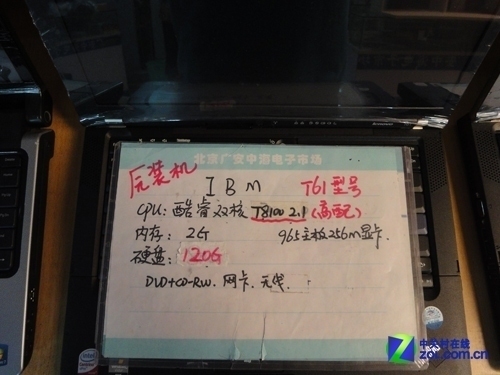 北京广安中海电子市场
原装机
IBM T61型号
CPU: 酷睿双核 T8100 2.1 (高配)
内存: 2G 965主板256m显卡.
硬盘: 120G
DVD+CD-RW. 网卡. 无线.
中关村在线
ZOL.COM.CN